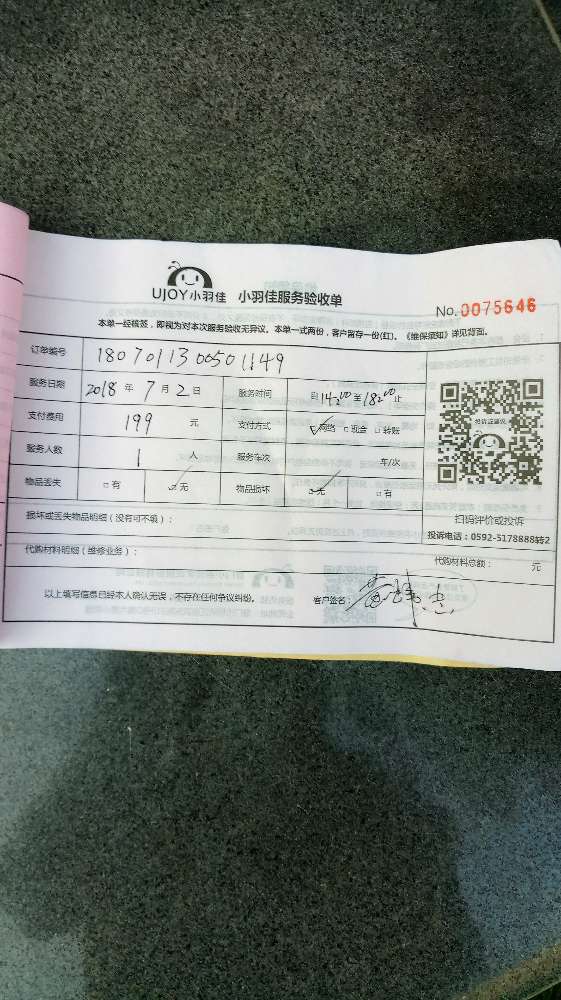 UJOY小羽佳 小羽佳服务验收单
No.0075646
本单一经核签，即视为对本次服务验收无异议。本单一式两份，客户留存一份(红)。《维保须知》详见背面。
订单编号 1807011300501149
服务日期 2018 年 7 月 2 日 服务时间 自 14:00 至 18:00 止
支付费用 199 元 支付方式 ☑网络 □现金 □转账
服务人数 1 人 服务车次 车/次
物品丢失 □有 ☑无 物品损坏 ☑无 □有
投诉或建议
扫码评价或投诉
投诉电话：0592-5178888转2
损坏或丢失物品明细（没有可不填）：
代购材料明细（维修业务）： 代购材料总额： 元
以上填写信息已经本人确认无误，不存在任何争议纠纷。 客户签名：